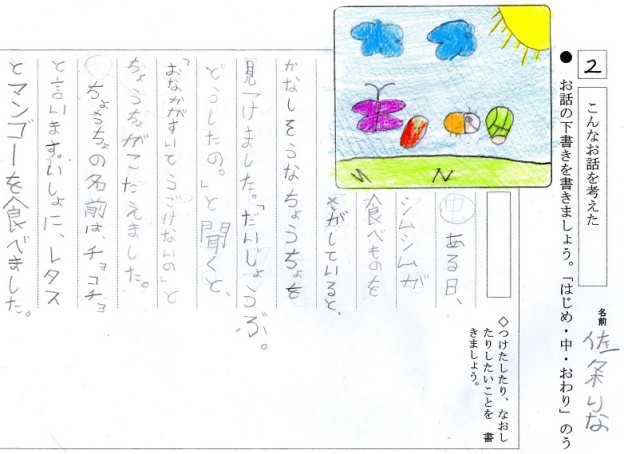 2 こんなお話を考えた
名前 佐条りな
● お話の下書きを書きましょう。「はじめ・中・おわり」のう
◇つけたしたり、なおし
たりしたいことを 書
きましょう。
中 ある日、
シムシムが
食べものを
さがしていると、
かなしそうなちょうちょを
見つけました。「だいじょうぶ。
どうしたの。」と聞くと、
「おなかがすいてうごけないの」と
ちょうちがこたえました。
ちょうちょの名前は、チョコチョ
と言います。いしょに、レタス
とマンゴーを食べました。